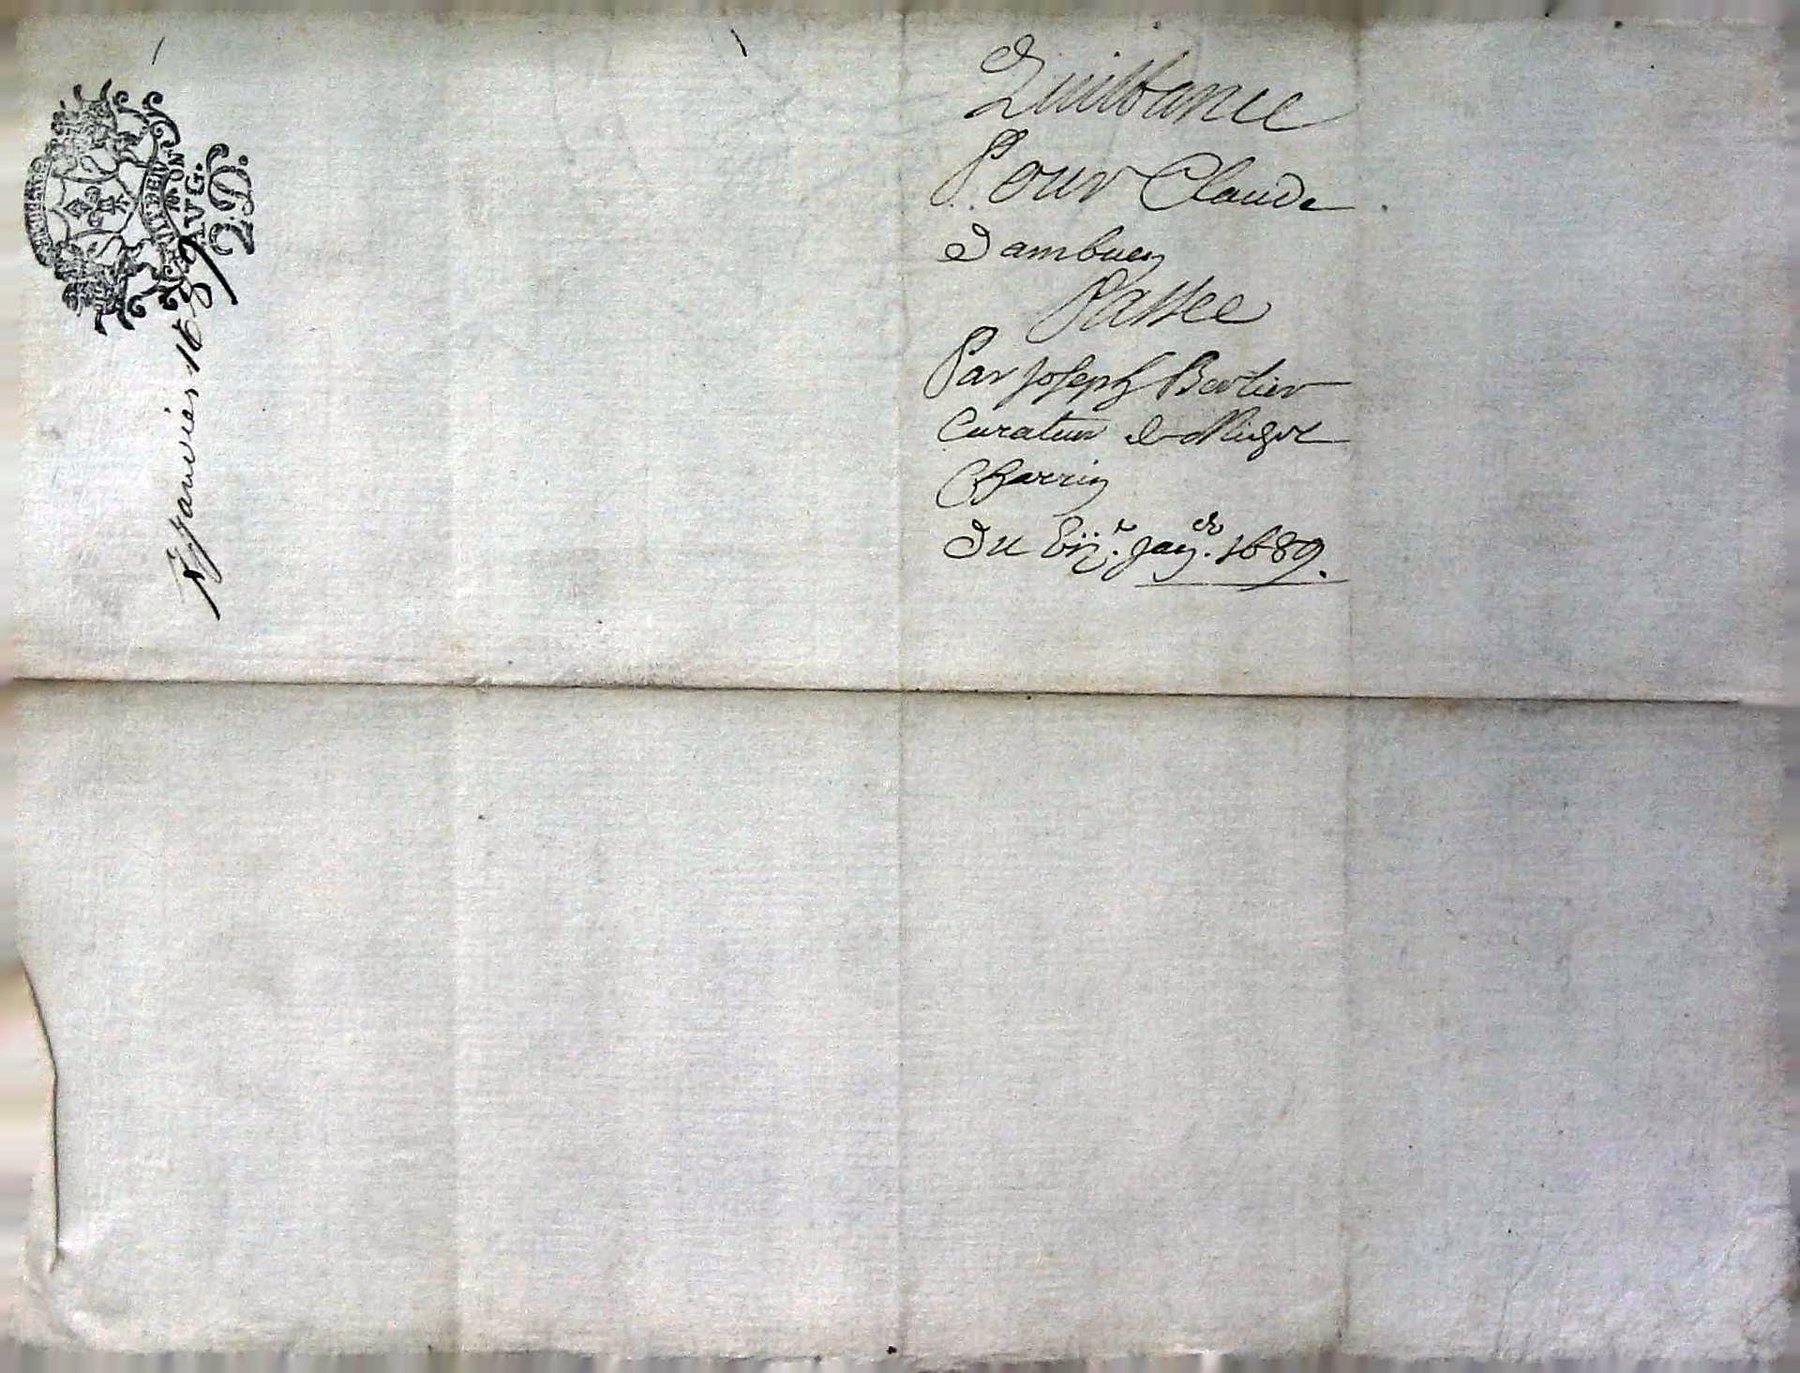 Quittance
Pour Claude
Dambuen
Passée
Par Joseph Bertier
Curateur de Michel
Charrin
Du janer. 1689.
AVG.
2.D.
janvier 1689